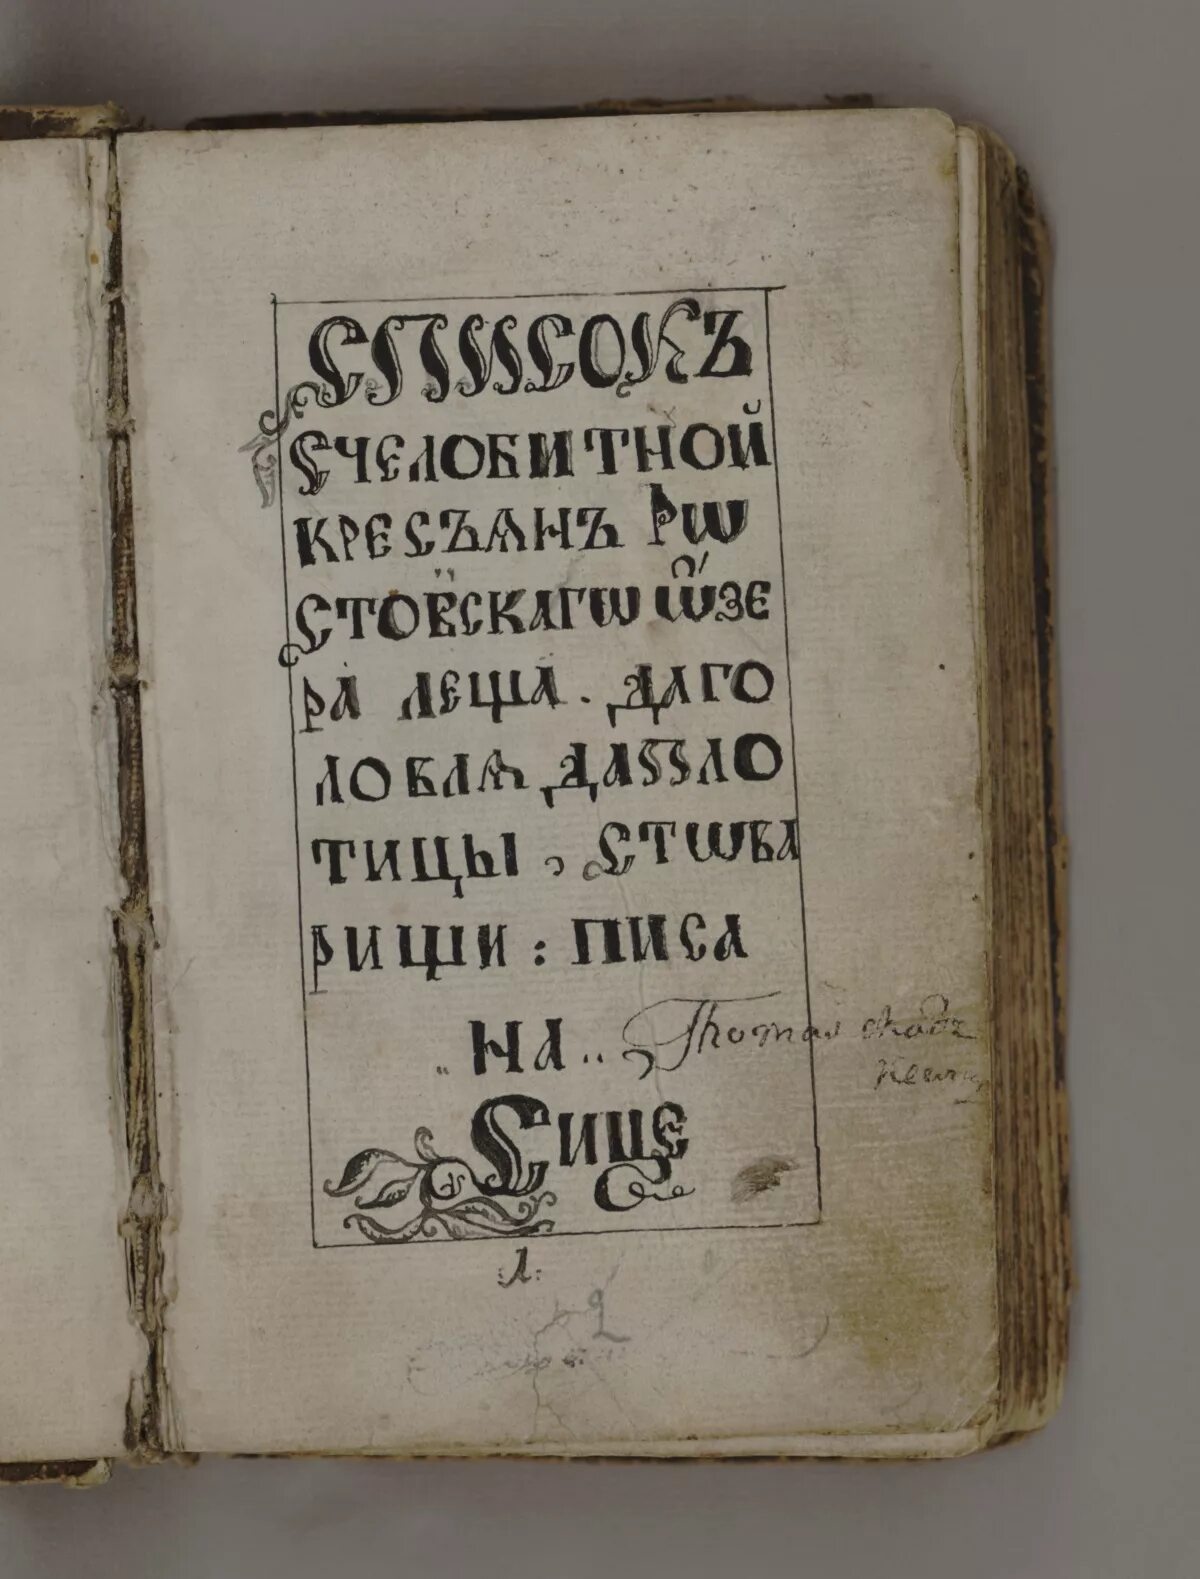 СПИСОКЪ
СЧЕЛОБИТНОЙ
КРЕСЪѦНЪ РѠ
СТОВСКАГѠ Ѡ҆́ЗЕ
РА ЛЕЩА . ДАГО
ЛОВЛѦ ДАПЛО
ТИЦЫ , СТѠВА
РИЩИ : ПИСА
.. НА ..
Thomas
СИЦЕ
:1:
2